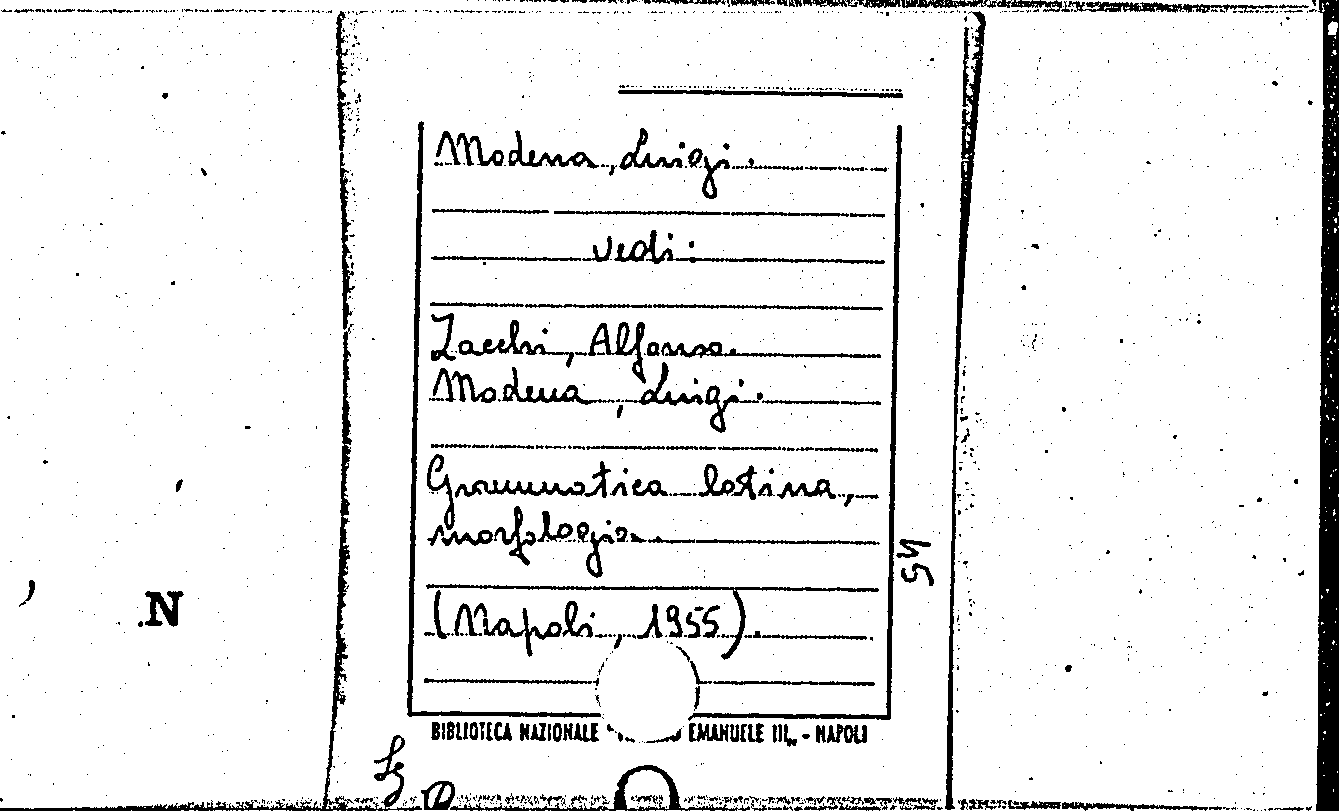 Modena, Luigi.
vedi:
Zacchi, Alfonso.
Modena, Luigi.
Grammatica latina,
morfologia.
(Napoli, 1955).
54
.N
BIBLIOTECA NAZIONALE " EMANUELE III„ - NAPOLI